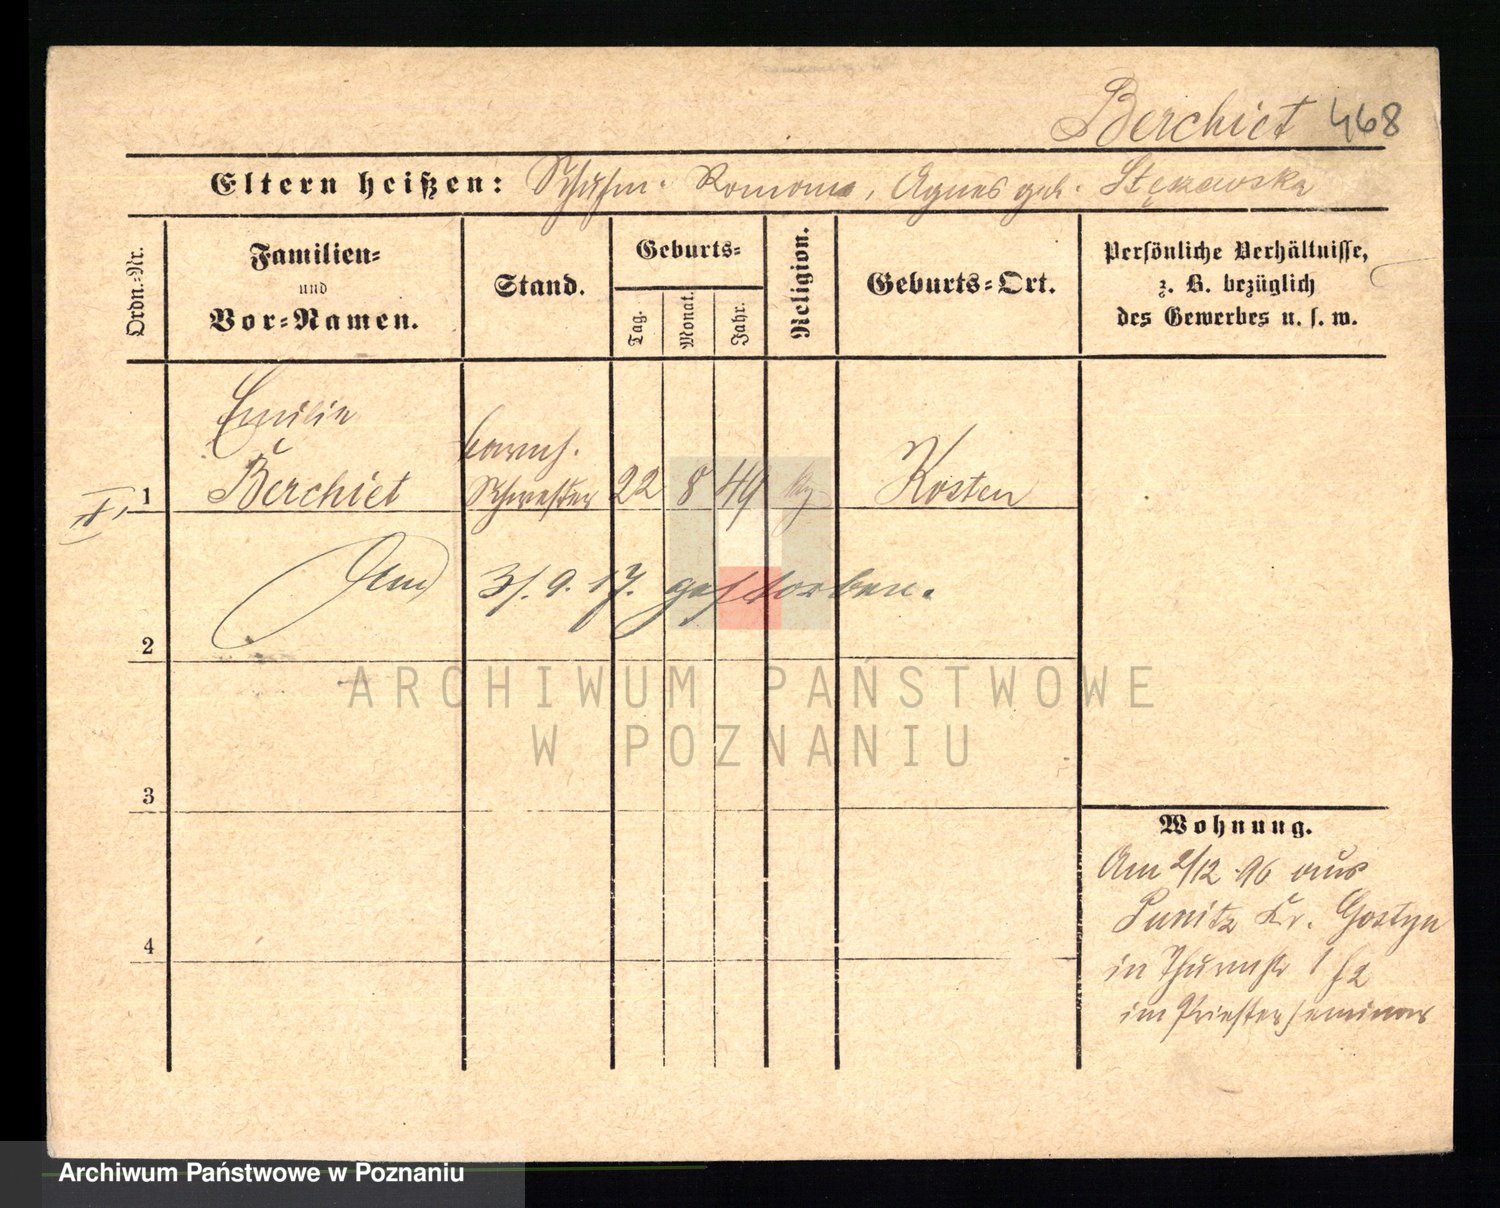 Berchiet 468
Eltern heißen: Schuhm. Roman, Agnes geb.
Ordn.-Nr.
Familien-
und
Vor-Namen.
Stand.
Geburts-
Tag.
Monat.
Jahr.
Religion.
Geburts-Ort.
Persönliche Verhältnisse,
z. B. bezüglich
des Gewerbes u. s. w.
Emilie
barmh.
1 Berchiet Schwester 22 8 49 Kosten
Am 31. 9. 17. gestorben.
2
3
4
Wohnung.
Am 2/12 96 aus
Punitz Kr. Gostyn
in Thurmstr
im Priesterseminar
ARCHIWUM PAŃSTWOWE
W POZNANIU
Archiwum Państwowe w Poznaniu